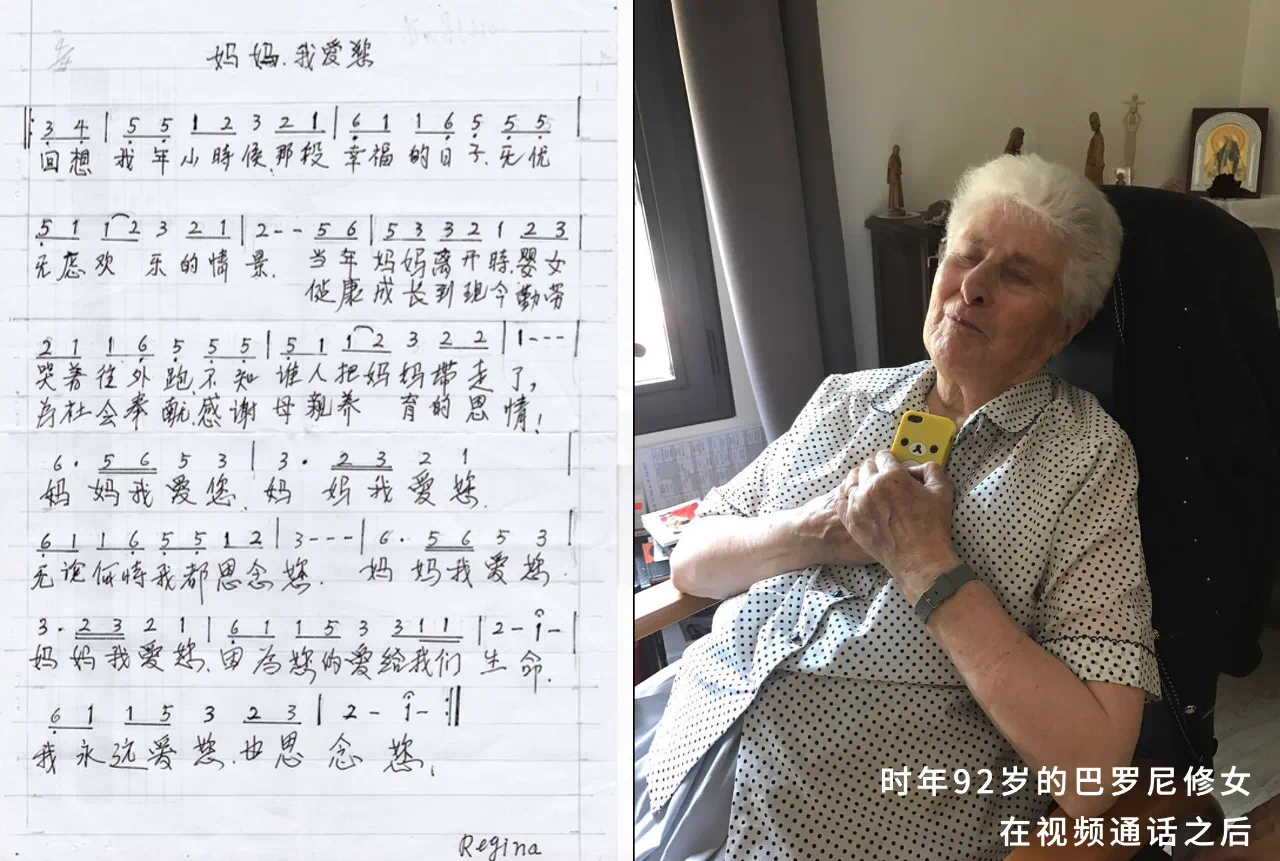 4/4
妈妈.我爱您
3 4 | 5 5 1 2 3 2 1 | 6 1 1 6 5 5 5 |
回想 我年小時候.那段 幸福的日子.无忧
5 1 1 2 3 2 1 | 2 - - 5 6 | 5 3 3 2 1 2 3 |
无虑欢乐的情景. 当年妈妈离开時.婴女
健康成长到现今勤劳
2 1 1 6 5 5 5 | 5 1 1 2 3 2 2 | 1 - - -
哭着往外跑.不知谁人把妈妈带走了,
为社会奉献.感谢母親养育的恩情!
6 . 5 6 5 3 | 3 . 2 3 2 1 |
妈妈我爱您.妈妈我爱您.
6 1 1 6 5 5 1 2 | 3 - - - | 6 . 5 6 5 3 |
无论何時我都思念您. 妈妈我爱您.
3 . 2 3 2 1 | 6 1 1 5 3 3 1 1 | 2 - 1 - |
妈妈我爱您.因为您的爱给我们生命.
6 1 1 5 3 2 3 | 2 - 1 - :||
我永远爱您.也思念您.
Regina
时年92岁的巴罗尼修女
在视频通话之后